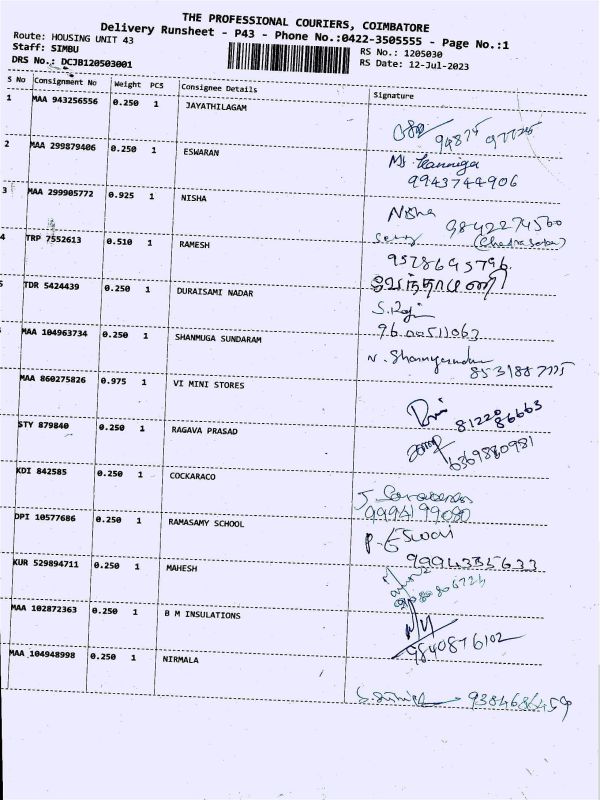 THE PROFESSIONAL COURIERS, COIMBATORE
Delivery Runsheet - P43 - Phone No.:0422-3505555 - Page No.:1
Route: HOUSING UNIT 43
Staff: SIMBU
DRS No.: DCJB120503001
RS No.: 1205030
RS Date: 12-Jul-2023
S No Consignment No Weight PCS Consignee Details Signature
1 MAA 943256556 0.250 1 JAYATHILAGAM
2 MAA 299879406 0.250 1 ESWARAN
9943744906
3 MAA 299905772 0.925 1 NISHA
Nisha 9842274560
4 TRP 7552613 0.510 1 RAMESH
9578645796
5 TDR 5424439 0.250 1 DURAISAMI NADAR
S. Raji
MAA 104963734 0.250 1 SHANMUGA SUNDARAM
MAA 860275826 0.975 1 VI MINI STORES
8122086663
STY 879840 0.250 1 RAGAVA PRASAD
6369880981
KDI 842585 0.250 1 COCKARACO
J. Saravanan
9994199090
DPI 10577686 0.250 1 RAMASAMY SCHOOL
P. Eswari
9994335633
KUR 529894711 0.250 1 MAHESH
MAA 102872363 0.250 1 B M INSULATIONS
9840876102
MAA 104948998 0.250 1 NIRMALA
9384686459